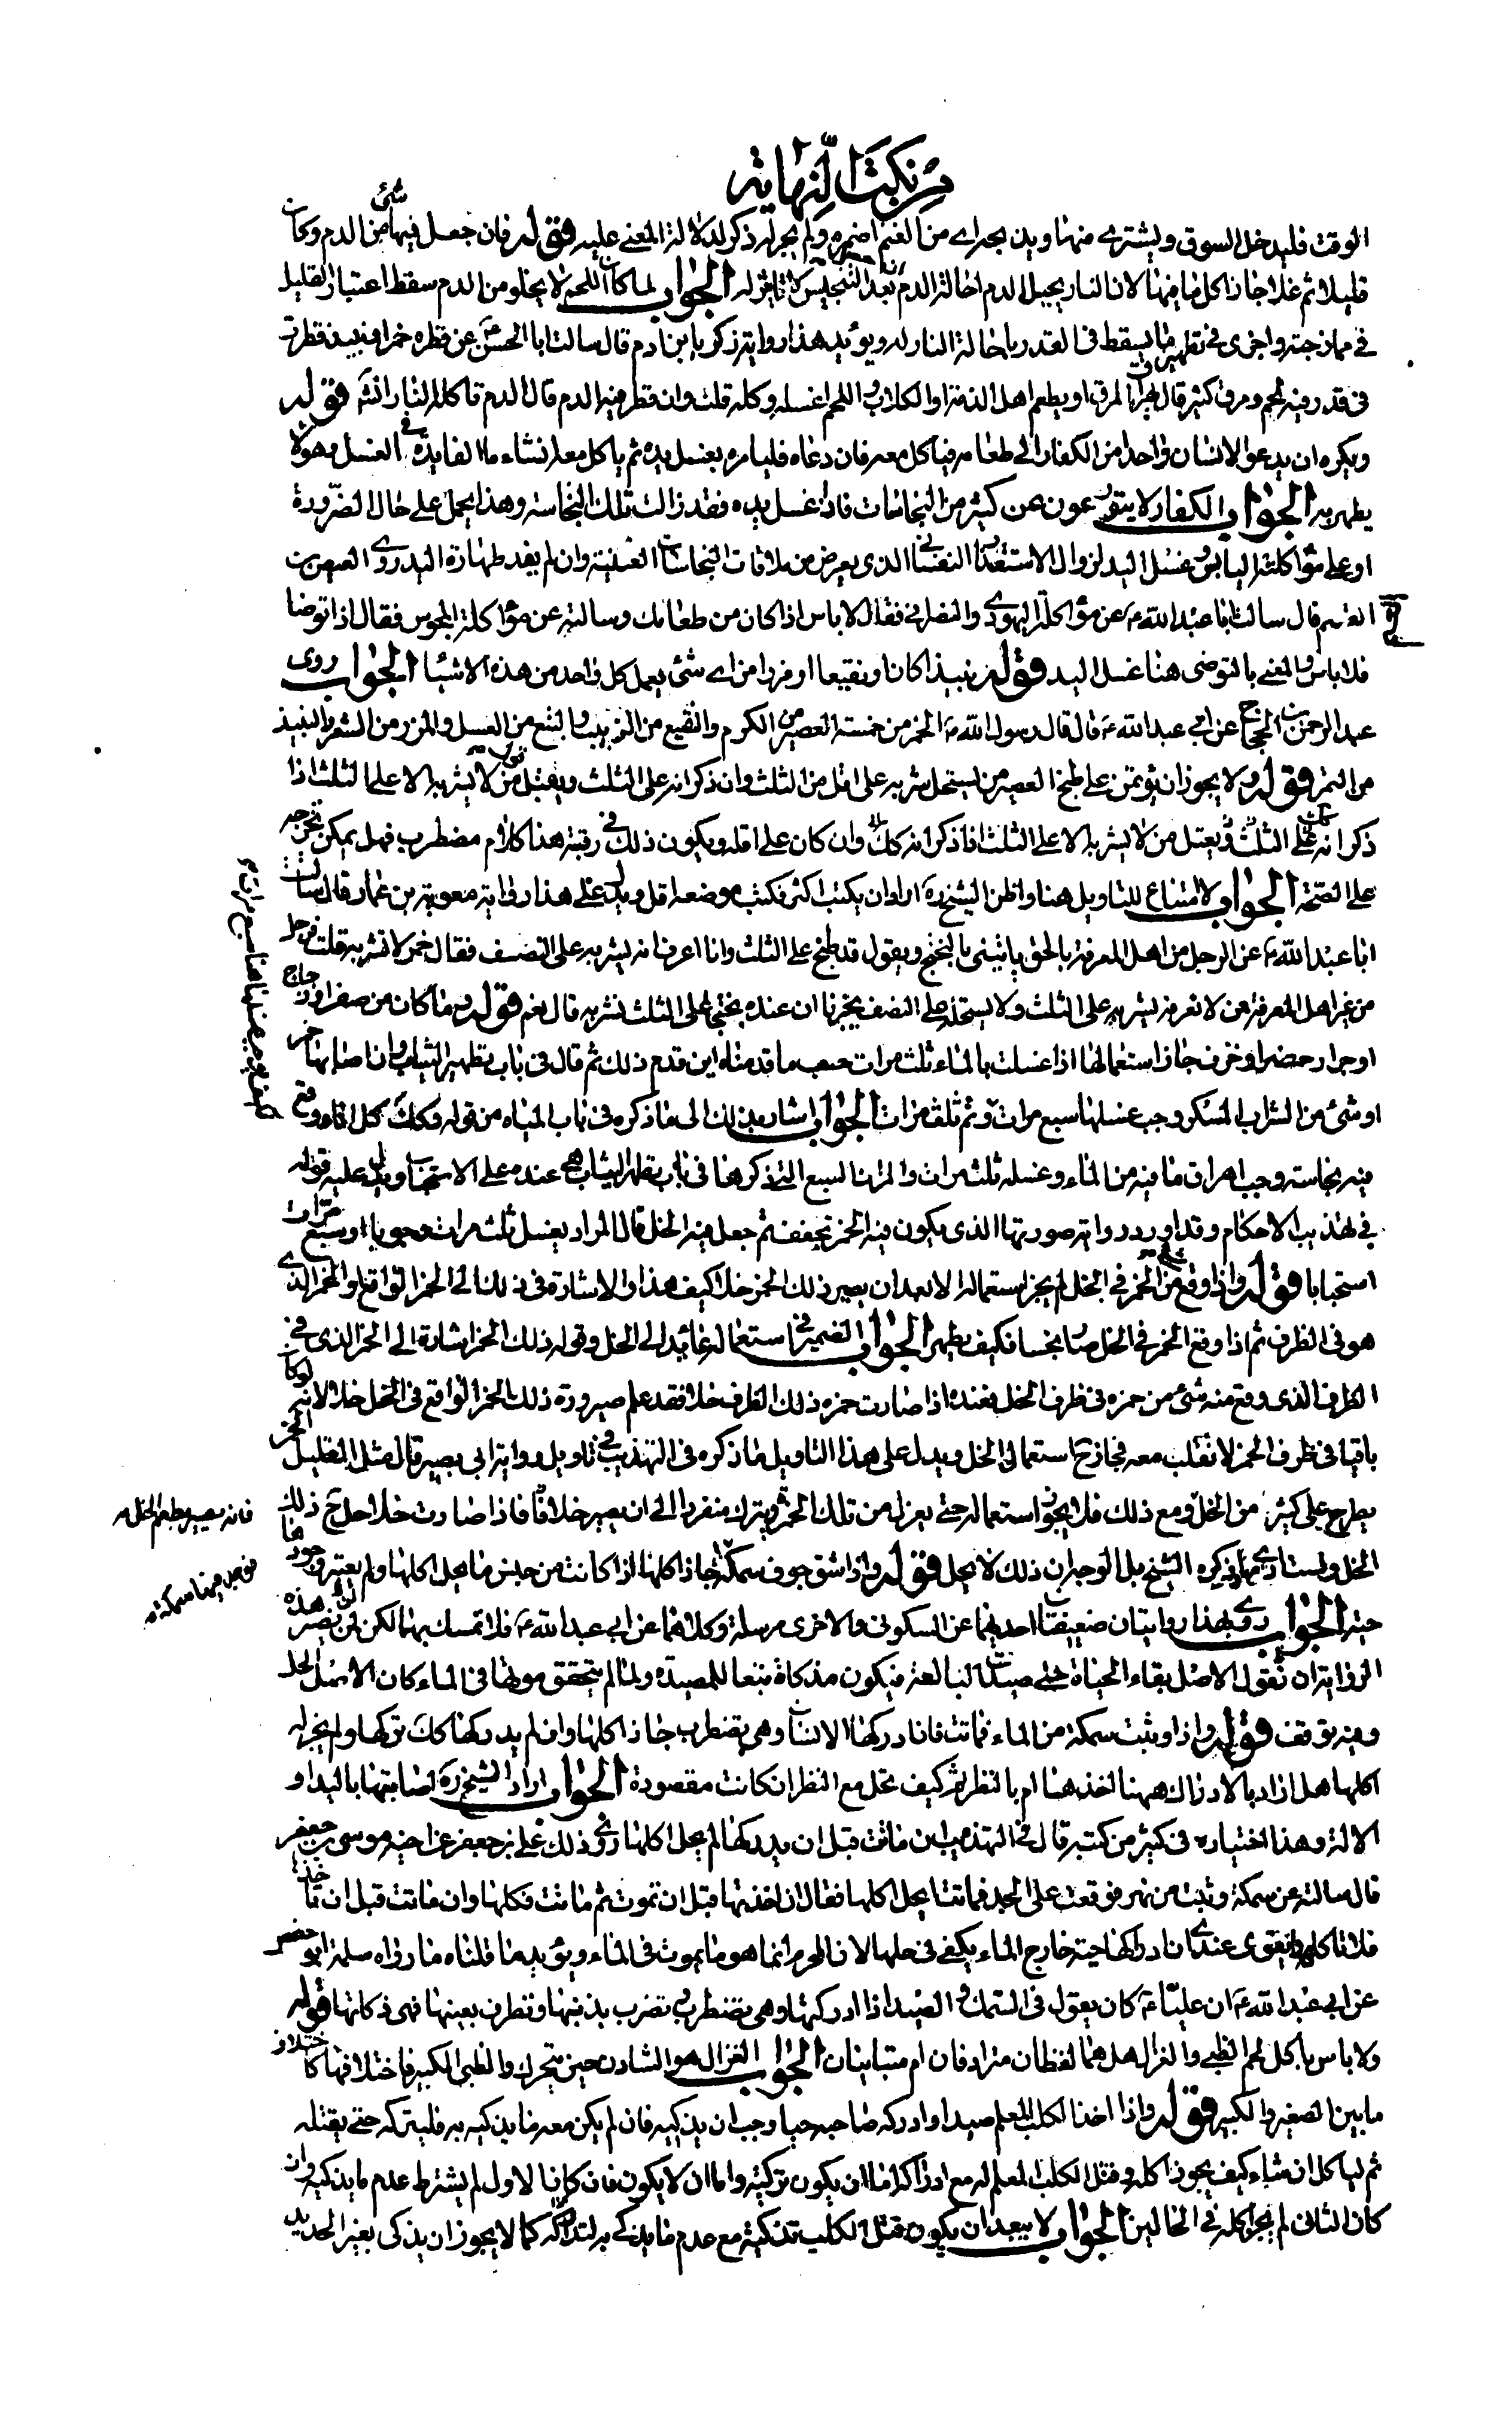 من نكت النهاية
الوقت فليدخل السوق وليشترى منها ويذبح اى من الغنم اضمره ولم يجر له ذكر لدلالة المعنى عليه فقوله فان جعل فيها شئ من الدم وكان
قليلا ثم غلا جاز اكل ما فيها لان النار يحيل الدم احالة الدم بعد التنجيس لا تاثير له الجواب لما كان اللحم لا يخلو من الدم سقط اعتبار القليل
فى ممازجته واجزى فى تطهير ما يسقط فى القدر باحالة النار له ويؤيد هذا رواية زكريا بن ادم قال سالت ابا الحسن عن قطرة خمر او نبيذ قطرت
فى قدر فيه لحم ومرق كثير قال يهراق المرق او يطعم اهل الذمة او الكلاب واللحم اغسله وكله قلت وان قطر فيه الدم قال الدم تاكله النار انشاء قوله
ويكره ان يدعو الانسان واحدا من الكفار الى طعامه فياكل معه فان دعاه فليامره بغسل يده ثم ياكل معه انشاء ما الفايدة فى الغسل وهو لا
يطهر به الجواب الكفار لا يتورعون عن كثير من النجاسات فاذا غسل يده فقد زالت تلك النجاسة وهذا يحمل على حال الضرورة
او على مؤاكلة اليابس وغسل اليد لزوال الاستقذار النفسانى الذى يعرض من ملاقات النجاسات العينية وان لم يفد طهارة اليد روى العيص بن
القسم قال سالت ابا عبد الله ع عن مؤاكلة اليهودى والنصرانى فقال لا باس اذا كان من طعامك وسالته عن مؤاكلة المجوس فقال اذا توضا
فلا باس والمعنى بالتوضى هنا غسل اليد قوله نبيذا كان او نقيعا او مزرا من اى شئ يعمل كل واحد من هذه الاشياء الجواب روى
عبد الرحمن بن الحجاج عن ابى عبد الله ع قال قال رسول الله ص الخمر من خمسة العصير من الكرم والنقيع من الزبيب والبتع من العسل والمزر من الشعير والنبيذ
من التمر قوله ولا يجوز ان يؤتمن على طبخ العصير من يستحل شربه على اقل من الثلث وان ذكر انه على الثلث ويقبل قول من لا يشربه الا على الثلث اذا
ذكر انه كان على الثلث ويقبل من لا يشربه الا على الثلث اذا ذكر انه كك وان كان على اقله ويكون ذلك فى رقبته هذا كلام مضطرب فهل يمكن تخرجه
على الصحة الجواب لا متناع للتاويل هنا واظن الشيخ ره اراد ان يكتب اكثر فكتب موضعه اقل ويدل على هذا رواية معوية بن عمار قال سالت
ابا عبد الله ع عن الرجل من اهل المعرفة بالحق ياتينى بالبختج ويقول قد طبخ على الثلث وانا اعرف انه يشربه على النصف فقال خمر لا تشربه قلت فرجل
من غير اهل المعرفة ممن لا نعرفه يشربه على الثلث ولا يستحله على النصف يخبرنا ان عنده بختجا على الثلث نشربه قال نعم قوله وما كان من صفر او زجاج
او جرار خضر او خزف جاز استعمالها اذا غسلت بالماء ثلث مرات حسب ما قدمناه اين قدم ذلك ثم قال فى باب تطهير الثياب وان اصابها خمر
او شئ من الشراب المسكر وجب غسلها سبع مرات وثم ثلث مرات الجواب اشار بذلك الى ما ذكره فى باب المياه من قوله وكك كل اناء وقع
فيه نجاسة وجب اهراق ما فيه من الماء وغسله ثلث مرات والمرات السبع التى ذكرها فى باب تطهير الثياب هى عنده على الاستحباب ويدل عليه قوله
فى تهذيب الاحكام وقد اورد رواية صورتها الذى يكون فيه الخمر يجفف ثم جعل فيه الخل قال المراد يغسل ثلث مرات وجوبا او سبع مرات
استحبابا قوله واذا وقع شئ من الخمر فى الخل لم يجز استعماله الا بعد ان يصير ذلك الخمر خلا كيف هذا والاشارة فى ذلك الى الخمر الواقع او الخمر الذى
هو فى الظرف ثم اذا وقع الخمر فى الخل صار نجسا فكيف يطهر الجواب الضمير فى استعماله عائد الى الخل وقوله ذلك الخمر اشارة الى الخمر الذى فى
الظرف الذى وقع منه شئ من خمره فى ظرف الخل فعنده اذا صارت خمره ذلك الظرف خلا فقد علم صيرورة ذلك الخمر الواقع فى الخل خلا لانه لو كان
باقيا فى ظرف الخمر لانقلب معه فجاز ح استعمال الخل ويدل على هذا التاويل ما ذكره فى التهذيب فى تاويل رواية ابى بصير قال مثل القليل الخمر
يطرح على كثير من الخل ومع ذلك فلا يجوز استعماله حتى يعزل من تلك الخمر ويترك مفردا الى ان يصير خلا فاذا صارت خلا حل ح ذلك
الخل ولست ارى ما ذكره الشيخ بل الوجه ان ذلك لا يحل قوله واذا شق جوف سمكة جاز اكلها اذا كانت من جنس ما يحل اكلها ولم يعتبر وجودها
حية الجواب روى بهذا روايتان ضعيفتان احديهما عن السكونى والاخرى مرسلة وكلاهما عن ابى عبد الله ع فلا تمسك بهما لكن لمن ينصر هذه
الرواية ان نقول الاصل بقاء الحياة حتى صيدت البالعة فيكون مذكاة تبعا للمصيدة ولما لم يتحقق موتها فى الماء كان الاصل الحل
وفيه توقف قوله واذا وثبت سمكة من الماء فماتت فان ادركها الانسان وهى يضطرب جاز اكلها وان لم يدركها كك تركها ولم يجز له
اكلها هل اراد بالادراك ههنا اخذها ام بالنظر ثم كيف تحل مع النظر ان كانت مقصودة الجواب اراد الشيخ ره اصابتها باليد او
الالة وهذا اختياره فى كثير من كتبه قال فى التهذيب ان ماتت قبل ان يدركها لم يحل اكلها روى ذلك على بن جعفر عن اخيه موسى بن جعفر
قال سالته عن سمكة وثبت من نهر فوقعت على الجد فماتت ايحل اكلها فقال ان اخذتها قبل ان تموت ثم ماتت فكلها وان ماتت قبل ان تاخذها
فلا تاكلها ويقوى عندى ان ادراكها حية خارج الماء يكفى فى حلها لان المحرم انما هو ما يموت فى الماء ويؤيد ما قلناه ما رواه سلمة ابو حفص
عن ابى عبد الله ع ان عليا ع كان يقول فى السمك والصيد اذا ادركتها وهى تضطرب وتضرب بذنبها وتطرف بعينها فهى ذكاتها قوله
ولا باس باكل لحم الظبى والغزال هل هما لفظان مترادفان ام متباينان الجواب الغزال هو الشادن حين يتحرك والظبى الكبير فاختلافهما كاختلاف
ما بين الصغير والكبير قوله واذا اخذ الكلب المعلم صيدا وادركه صاحبه حيا وجب ان يذكيه فان لم يكن معه ما يذكيه به فليتركه حتى يقتله
ثم لياكل ان شاء كيف يجوز اكله وقتل الكلب المعلم له مع ادراكه اما ان يكون تزكية واما ان لا يكون فان كان الاول لم يشترط عدم ما يذكيه وان
كان الثانى لم يجز اكله فى الحالين الجواب لا يبعد ان يكون قتل الكلب تذكية مع عدم ما يذكى به لتداركه كما لا يجوز ان يذكى بغير الحديد
فانه يصير بطعم الخل م
فوجد فيها سمكة م